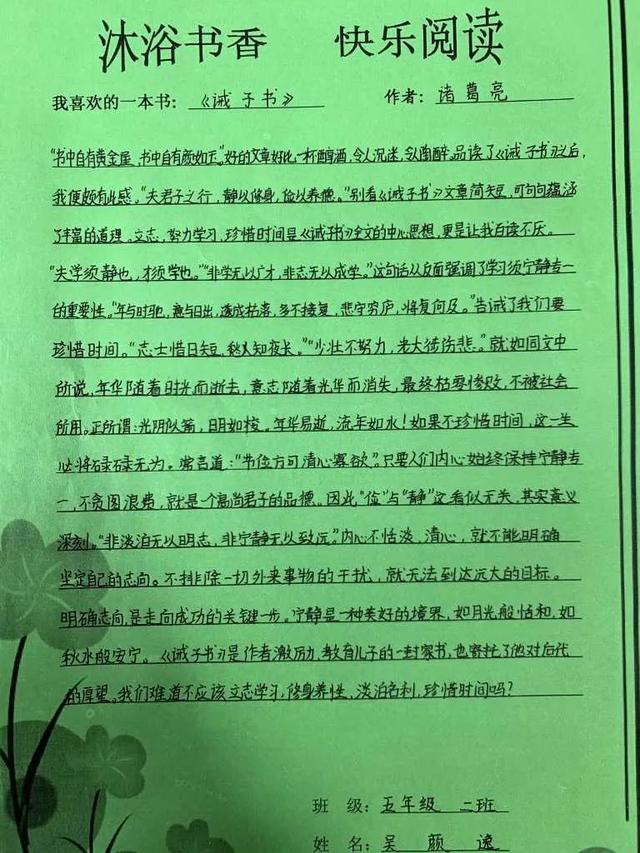 沐浴书香 快乐阅读
我喜欢的一本书：《诫子书》 作者：诸葛亮
“书中自有黄金屋，书中自有颜如玉。”好的文章好比一杯醇酒，令人沉迷，令人陶醉。品读了《诫子书》之后，
我便颇有此感。“夫君子之行，静以修身，俭以养德。”别看《诫子书》文章简短，可句句蕴涵
了丰富的道理。立志，努力学习，珍惜时间是《诫子书》全文的中心思想，更是让我百读不厌。
“夫学须静也，才须学也。”“非学无以广才，非志无以成学。”这句话从反面强调了学习须宁静专一
的重要性。“年与时驰，意与日去，遂成枯落，多不接复，悲守穷庐，将复何及。”告诫了我们要
珍惜时间。“志士惜日短，愁人知夜长。”“少壮不努力，老大徒伤悲。”就如同文中
所说，年华随着时光而逝去，意志随着光华而消失，最终枯零惨败，不被社会
所用。正所谓：光阴似箭，日月如梭。年华易逝，流年如水！如果不珍惜时间，这一生
必将碌碌无为。常言道：“节俭方可清心寡欲”。只要人们内心始终保持宁静专
一，不贪图浪费，就是个高尚君子的品德。因此“俭”与“静”这看似无关，其实意义
深刻。“非淡泊无以明志，非宁静无以致远。”内心不恬淡、清心，就不能明确
坚定自己的志向。不排除一切外来事物的干扰，就无法到达远大的目标。
明确志向，是走向成功的关键一步。宁静是一种美好的境界，如月光般恬和，如
秋水般安宁。《诫子书》是作者激励，教育儿子的一封家书，也寄托了他对后代
的厚望。我们难道不应该立志学习，修身养性，淡泊名利，珍惜时间吗？
班 级：五年级 二班
姓 名：吴 颜